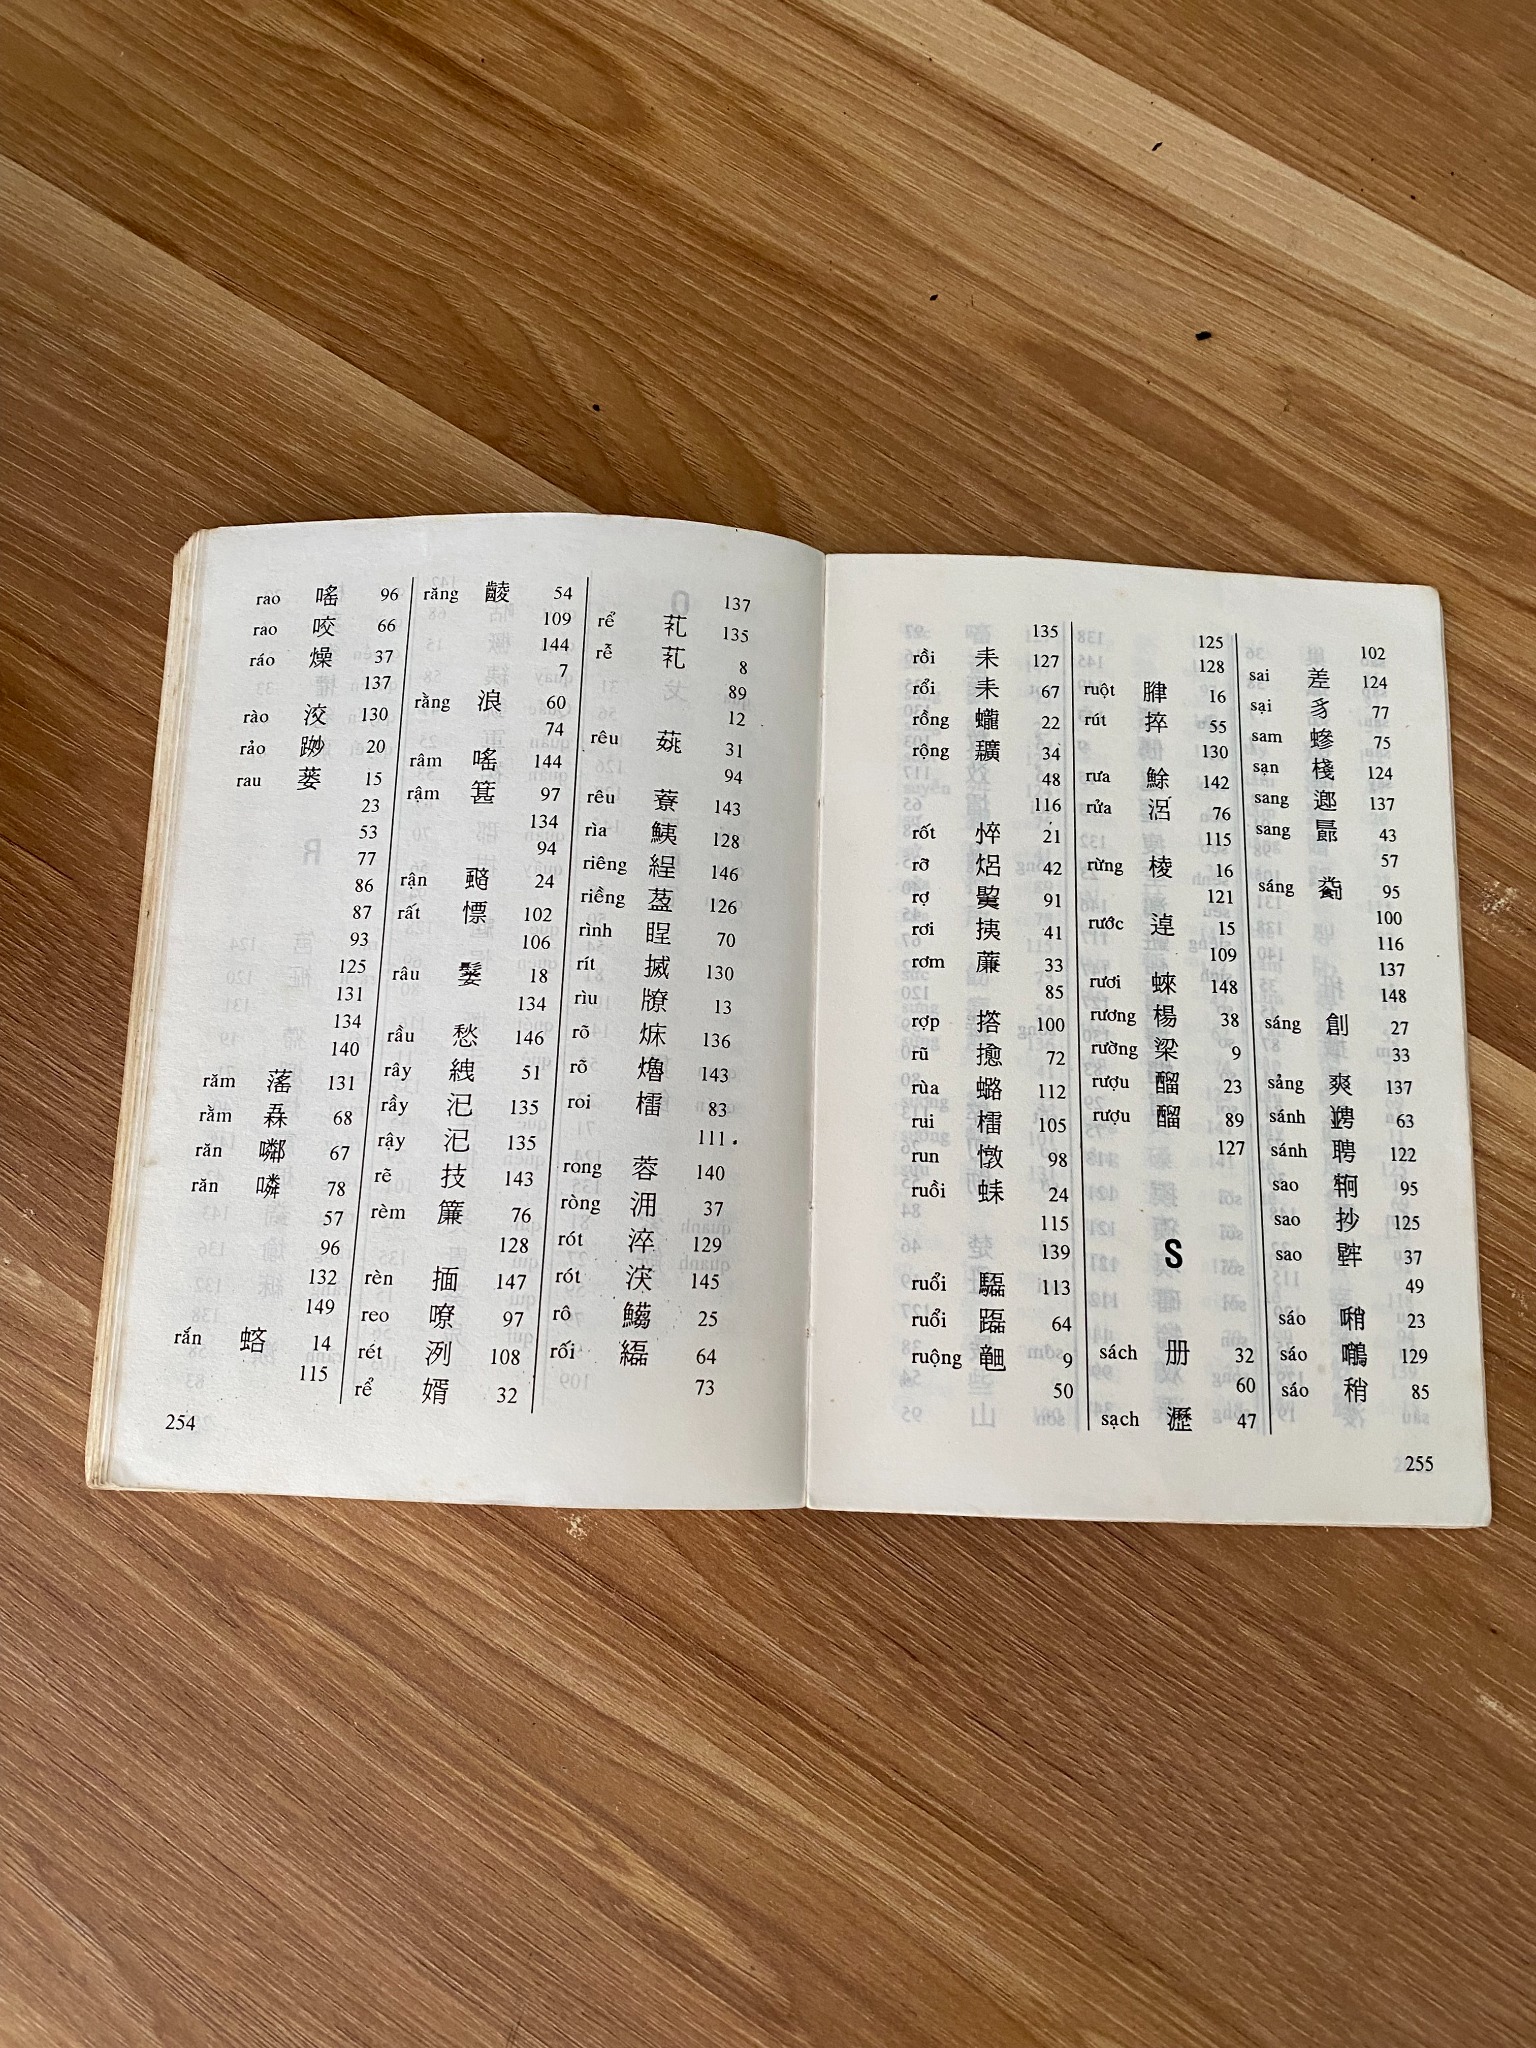 rao 嗂 96
rao 咬 66
ráo 燥 37
137
rào 洨 130
rảo 20
rau 蒌 15
23
53
77
86
87
93
125
131
134
140
răm 131
rằm 68
răn 67
răn 噒 78
57
96
132
149
rắn 14
115
254
răng 54
109
144
7
rằng 浪 60
74
râm 嗂 144
rậm 葚 97
134
94
rận 24
rất 慓 102
106
râu 18
134
rầu 愁 146
rây 絏 51
rầy 汜 135
rậy 汜 135
rẽ 技 143
rèm 簾 76
128
rèn 147
reo 嘹 97
rét 洌 108
rể 婿 32
137
rể 135
rễ 8
89
12
rêu 31
94
rêu 藔 143
rìa 128
riêng 146
riềng 126
rình 睈 70
rít 搣 130
rìu 13
rõ 136
rõ 143
roi 檑 83
111
rong 蓉 140
ròng 37
rót 淬 129
rót 145
rô 25
rối 64
73
135
rồi 耒 127
rổi 耒 67
rồng 蠬 22
rộng 34
48
116
rốt 悴 21
rỡ 焒 42
rợ 91
rơi 41
rơm 33
85
rợp 撘 100
rũ 72
rùa 112
rui 檑 105
run 憞 98
ruồi 24
115
139
ruổi 113
ruổi 64
ruộng 9
50
125
128
ruột 16
rút 捽 55
130
rưa 142
rửa 76
115
rừng 棱 16
121
rước 15
109
rươi 148
rương 楊 38
rường 梁 9
rượu 23
rượu 89
127
S
sách 册 32
60
sạch 瀝 47
102
sai 差 124
sại 豸 77
sam 75
sạn 棧 124
sang 137
sang 43
57
sáng 95
100
116
137
148
sáng 創 27
33
sảng 爽 137
sánh 63
sánh 聘 122
sao 95
sao 抄 125
sao 37
49
sáo 哨 23
sáo 129
sáo 稍 85
255